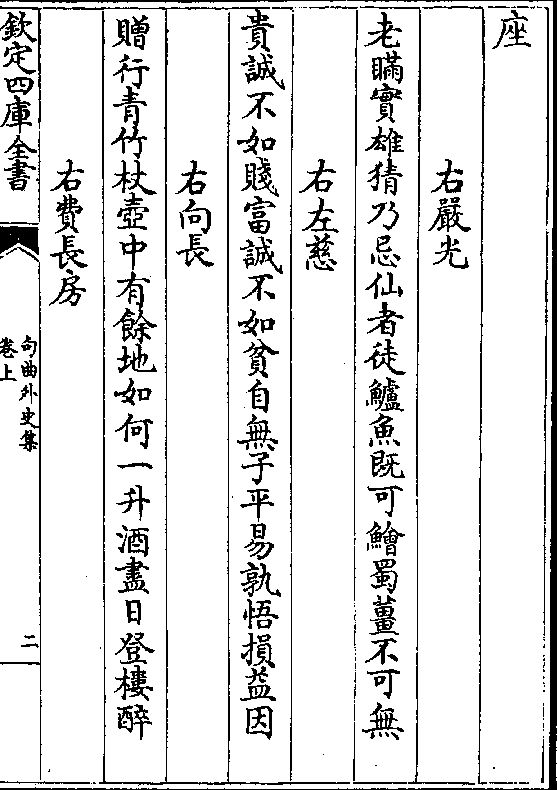 座
右嚴光
老瞞實雄猜乃忌仙者徒鱸魚既可鱠蜀薑不可無
右左慈
貴誠不如賤富誠不如貧自無子平易孰悟損益因
右向長
贈行青竹杖壺中有餘地如何一升酒盡日登樓醉
右費長房
欽定四庫全書
句曲外史集
卷上
二